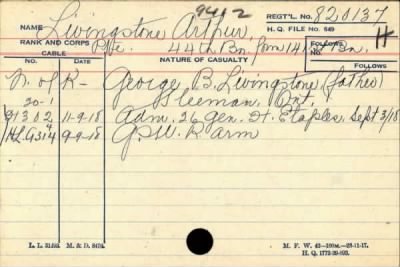 9412
NAME Livingstone Arthur, REGT'L. No. 820137
RANK AND CORPS Pte. 44th Bn. form 141st Bn. H. Q. FILE No. 649 H
CABLE NATURE OF CASUALTY FOLLOWS
No. DATE FOLLOWS
N. of K- George B. Livingstone (father)
20-1 Sleeman, Ont.
G1302 11-9-18 Adm. 26 Gen. H. Etaples Sept 3/18
HL.G314 9-9-18 G.S.W. R. arm
L. L. M. & D. M. F. W. 42-100M.-23-11-17.
H. Q. 1772-39-893.